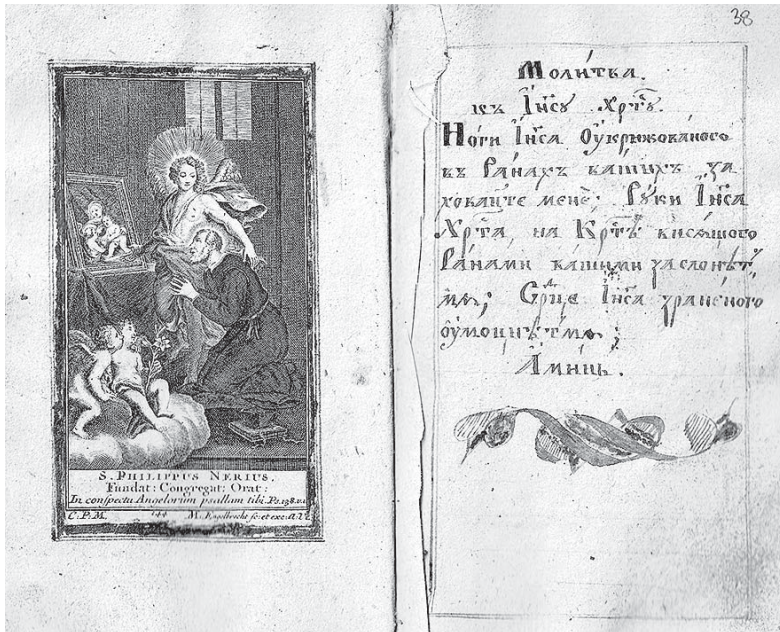 S. PHILIPPUS NERIUS.
Fundat: Congregat: Orat:
In conspectu Angelorum psallam tibi. Ps. 138. v. 1.
C. P. M. 144 M. Engelbrecht sc. et exc. A. V.
38
Моли́тва.
къ І҆и҃су Хр҃ту.
Но́ги І҆и҃са Оу҆крижова́ного
въ Ра́нахъ ва́шихъ за
ховайте менѐ; Ру́ки І҆и҃са
Хр҃та, на Кр҃тѣ висѧ́щого
Ра́нами ва́шими заслонѣ́тъ
мѧ; Ср҃це І҆и҃са зране́ного
оу҆моцнѣ́т мѧ;
А҆ми́нь.